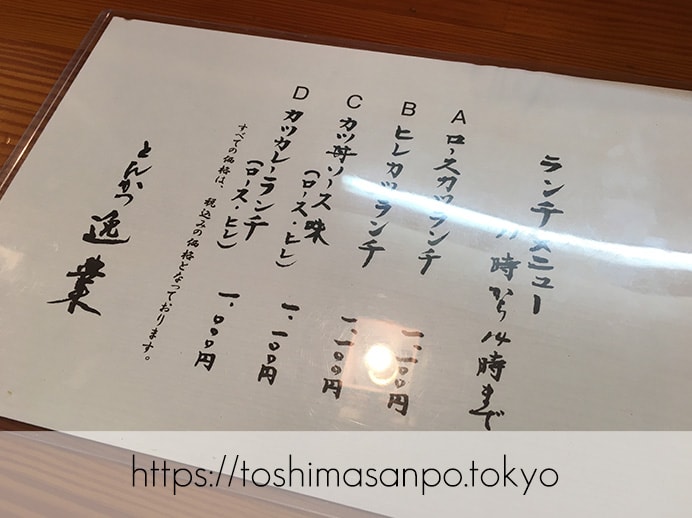 ランチメニュー
時から14時まで
A ロースカツランチ 一、一〇〇円
B ヒレカツランチ 一、二〇〇円
C カツ丼ソース味(ロース・ヒレ) 一、一〇〇円
D カツカレーランチ(ロース・ヒレ) 一、〇〇〇円
すべての価格は、税込みの価格となっております。
とんかつ 逸業
https://toshimasanpo.tokyo